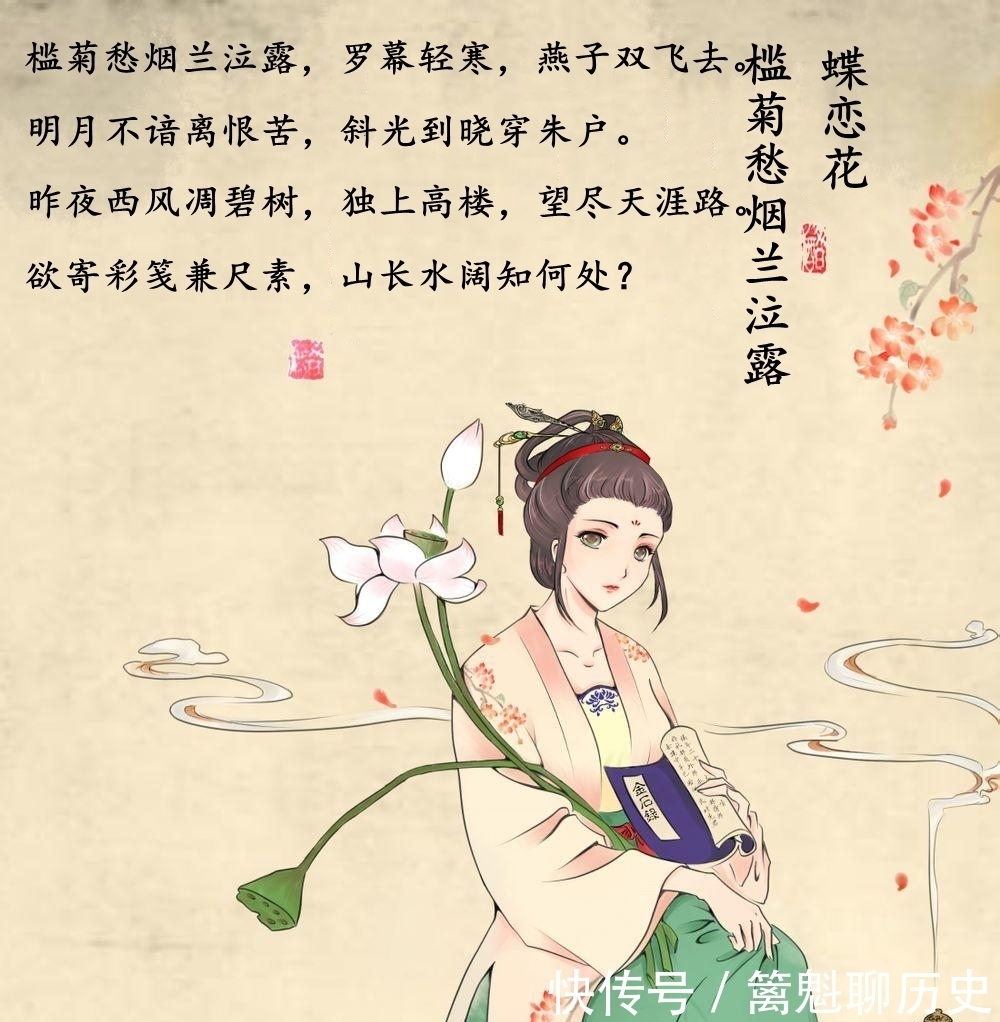 蝶恋花
槛菊愁烟兰泣露
槛菊愁烟兰泣露，罗幕轻寒，燕子双飞去。
明月不谙离恨苦，斜光到晓穿朱户。
昨夜西风凋碧树，独上高楼，望尽天涯路。
欲寄彩笺兼尺素，山长水阔知何处？
金石錄
快传号 / 篱魁聊历史